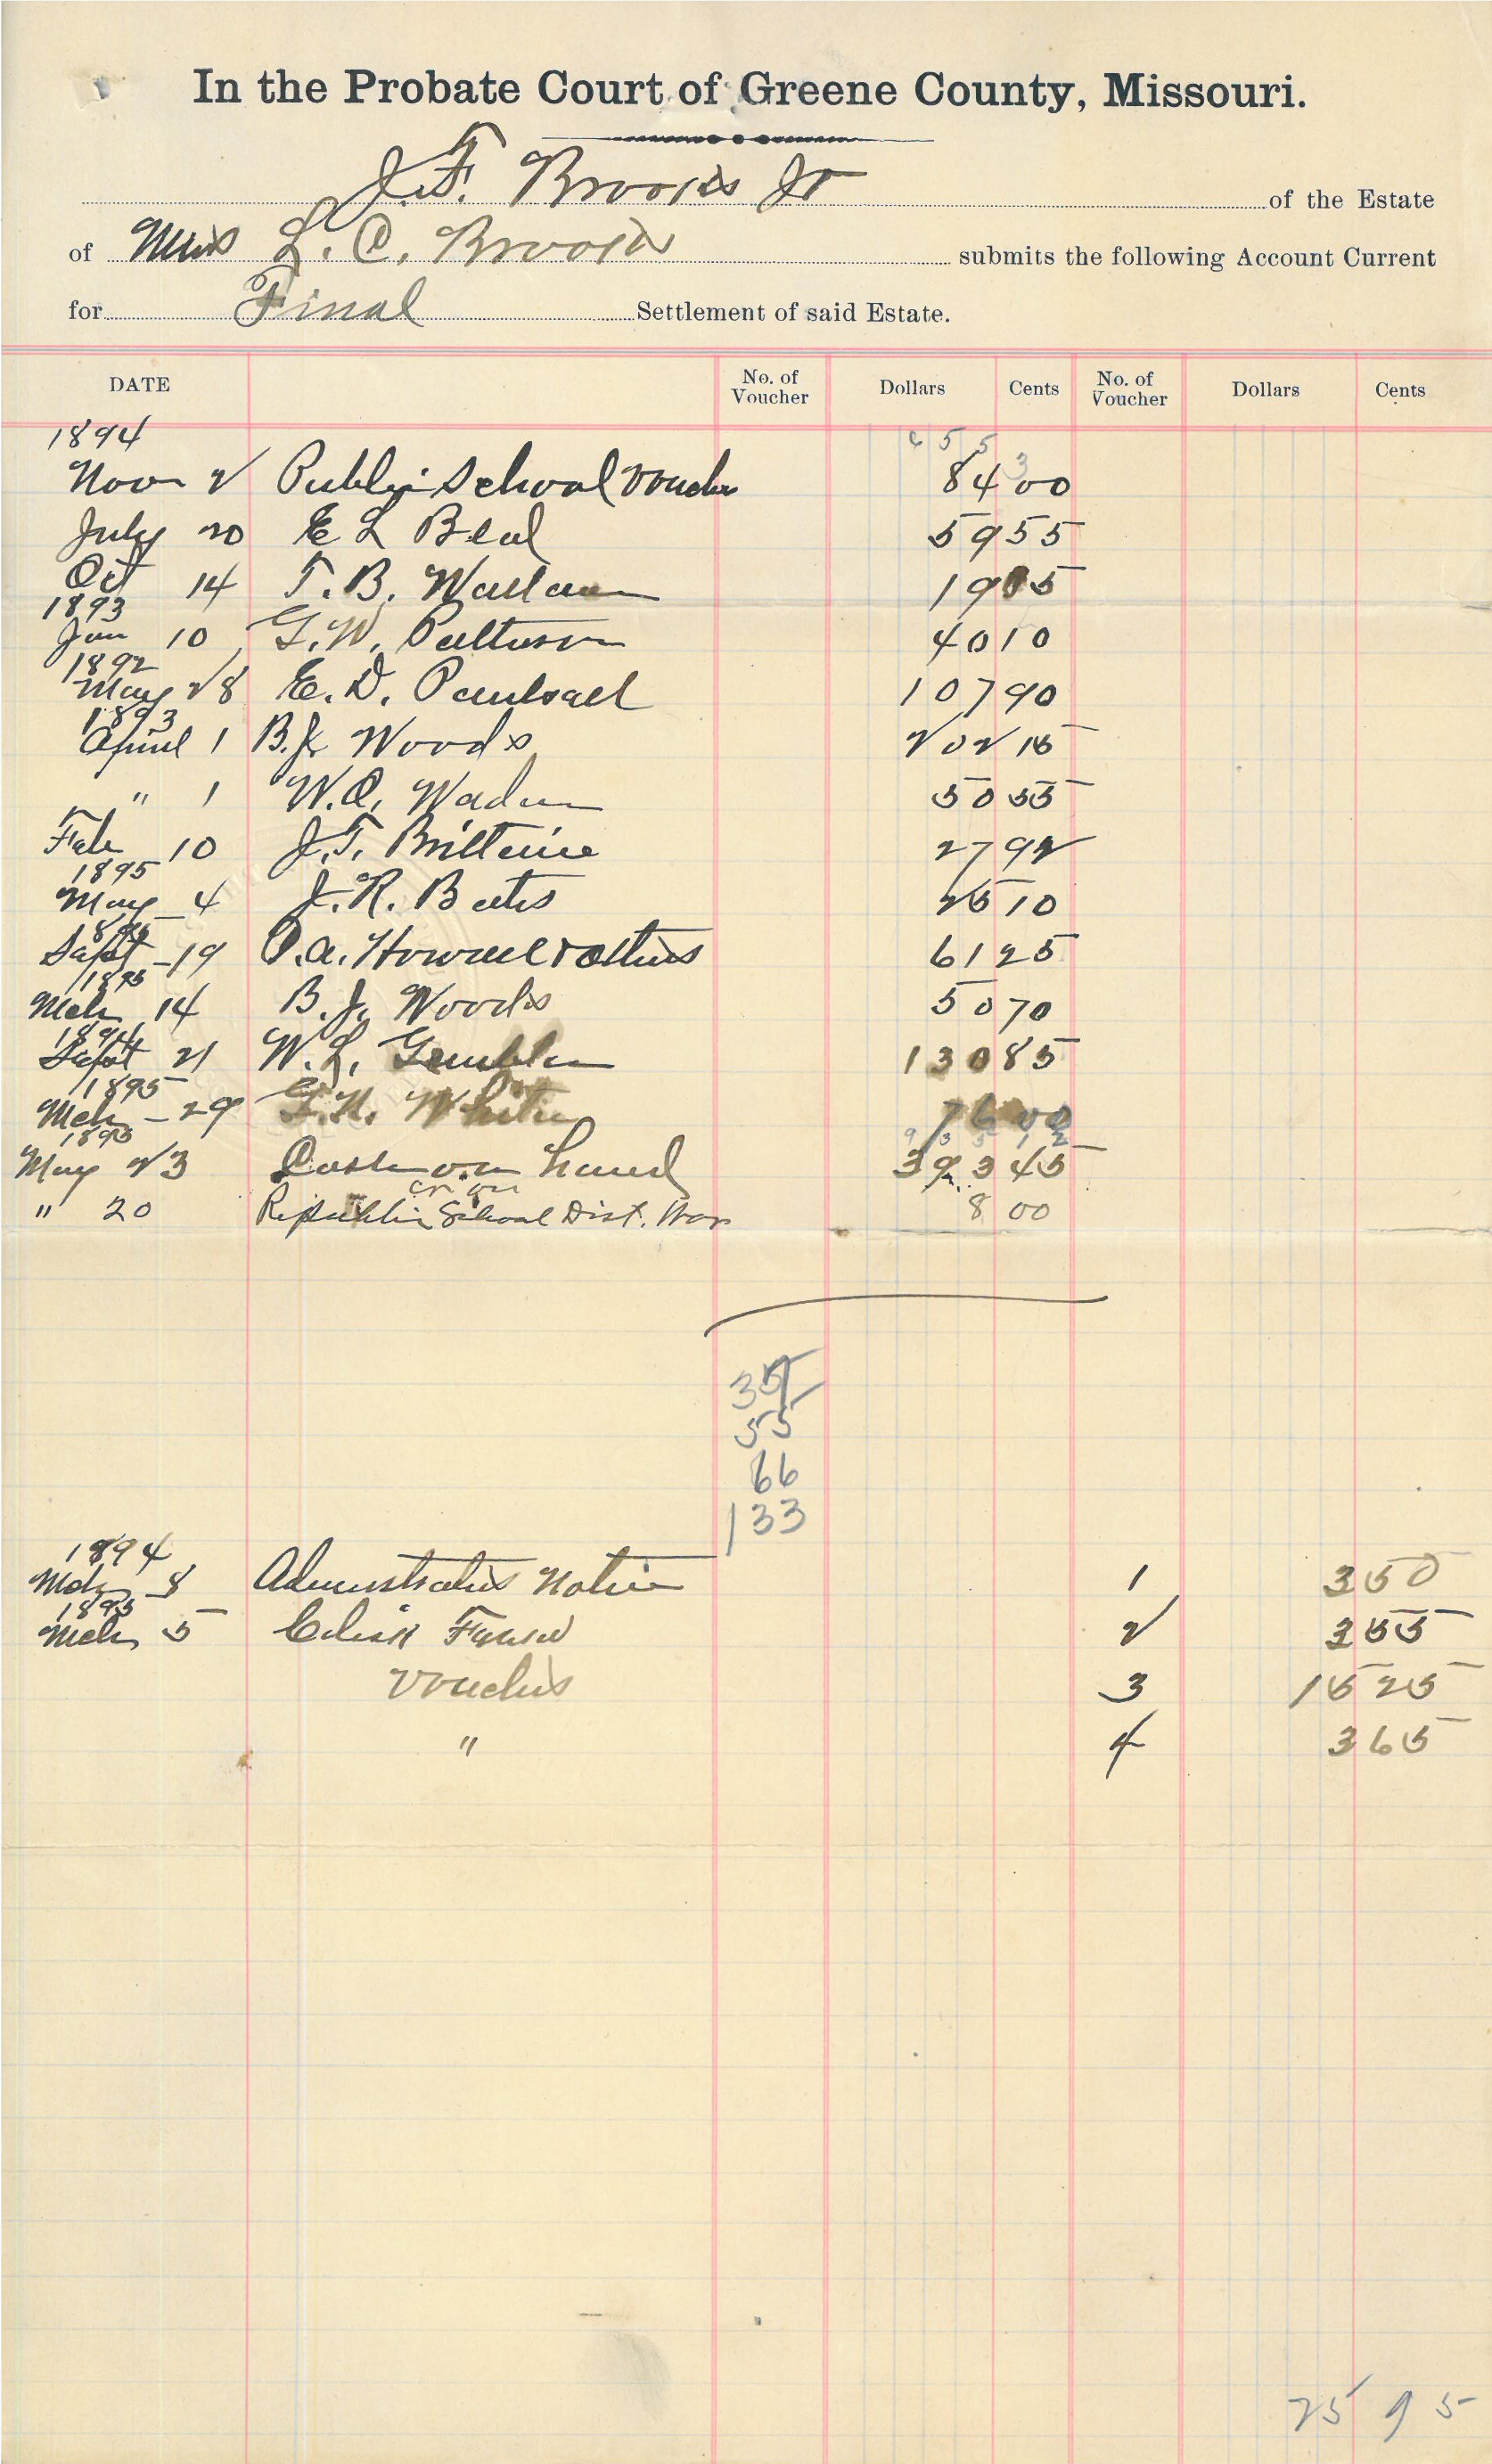 In the Probate Court of Greene County, Missouri.
J.F. Brooks Jr of the Estate
of L. C. Brooks submits the following Account Current
for Final Settlement of said Estate.
DATE No. of Voucher Dollars Cents No. of Voucher Dollars Cents
1894
6 5 5 3
Nov 2 Public School Voucher 84 00
July 20 E L Beal 59 55
Oct 14 T. B. Wallace 19 05
1893
Jan 10 G. W. Patterson 40 10
1892
May 28 E. D. 107 90
1893
April 1 B. J. Woods 202 15
" 1 W. C. 50 55
Feb 10 J. T. Brittaine 27 92
1895
May 4 J. R. Bates 25 10
Sept 19 & others 61 25
1895
Mch 14 B. J. Woods 50 70
1894
Sept 21 W. L. 130 85
1895
Mch 29 White 76 00
1895
9 3 5 1 2
May 23 Cash on hand 393 45
" 20 Republic School Dist. War 8 00
35
55
66
133
1894
Mch 8 Administrators Notice 1 3 50
1895
Mch 5 2 3 55
Vouchers 3 15 25
" 4 3 65
25 95